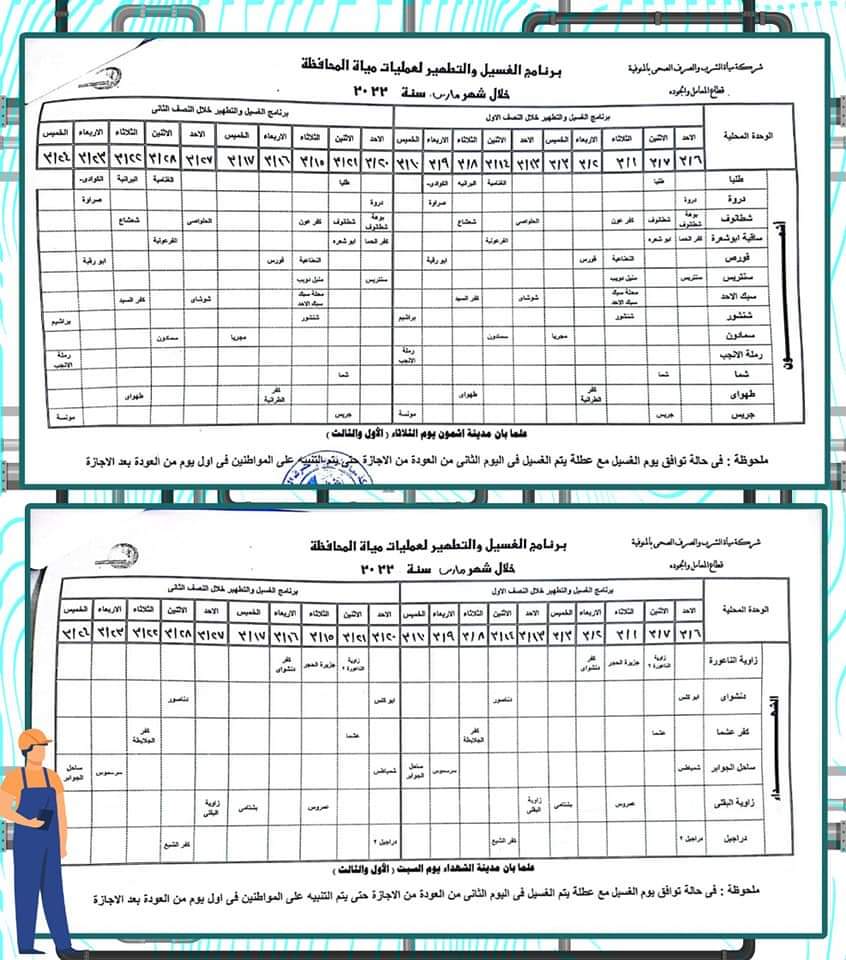 شركة مياة الشرب والصرف الصحى بالمنوفية
قطاع المعامل والجوده
برنامج الغسيل والتطهير لعمليات مياة المحافظة
خلال شهر مارس سنة ٢٠٢٢
الوحدة المحلية
برنامج الغسيل والتطهير خلال النصف الاول
برنامج الغسيل والتطهير خلال النصف الثانى
الاحد الاثنين الثلاثاء الاربعاء الخميس الاحد الاثنين الثلاثاء الاربعاء الخميس الاحد الاثنين الثلاثاء الاربعاء الخميس الاحد الاثنين الثلاثاء الاربعاء الخميس
٣/٦ ٣/٧ ٣/١ ٣/٢ ٣/٣ ٣/١٣ ٣/١٤ ٣/٨ ٣/٩ ٣/١٠ ٣/٢٠ ٣/٢١ ٣/١٥ ٣/١٦ ٣/١٧ ٣/٢٧ ٣/٢٨ ٣/٢٢ ٣/٢٣ ٣/٢٤
أشمون
طليا طليا الغنامية البرانيه الكوادى طليا الغنامية البرانية الكوادى
دروة دروة صراوة دروة صراوة
شطانوف بوهة شطانوف شطانوف كفر عون الحلواصى شعشاع بوهة شطانوف شطانوف كفر عون الحلواصى شعشاع
ساقية ابوشعرة كفر الحما ابو شعره الفرعونية كفر الحما ابو شعره الفرعونية
قورص النعناعية قورس ابو رقبة النعناعية قورس ابو رقبة
سنتريس سنتريس منيل دويب سنتريس منيل دويب
سبك الاحد محلة سبك سبك الاحد شوشاى كفر السيد محلة سبك سبك الاحد شوشاى كفر السيد
شنشور شنشور براشيم شنشور براشيم
سمادون مجريا سمادون مجريا سمادون
رملة الانجب رملة الانجب رملة الانجب
شما شما شما
طهواى كفر الطراينة طهواى كفر الطراينة طهواى
جريس جريس مونسة جريس مونسة
علما بان مدينة اشمون يوم الثلاثاء ( الأول والثالث )
ملحوظة : فى حالة توافق يوم الغسيل مع عطلة يتم الغسيل فى اليوم الثانى من العودة من الاجازة حتى يتم التنبيه على المواطنين فى اول يوم من العودة بعد الاجازة
شركة مياة الشرب والصرف الصحى بالمنوفية
قطاع المعامل والجوده
برنامج الغسيل والتطهير لعمليات مياة المحافظة
خلال شهر مارس سنة ٢٠٢٢
الوحدة المحلية
برنامج الغسيل والتطهير خلال النصف الاول
برنامج الغسيل والتطهير خلال النصف الثانى
الاحد الاثنين الثلاثاء الاربعاء الخميس الاحد الاثنين الثلاثاء الاربعاء الخميس الاحد الاثنين الثلاثاء الاربعاء الخميس الاحد الاثنين الثلاثاء الاربعاء الخميس
٣/٦ ٣/٧ ٣/١ ٣/٢ ٣/٣ ٣/١٣ ٣/١٤ ٣/٨ ٣/٩ ٣/١٠ ٣/٢٠ ٣/٢١ ٣/١٥ ٣/١٦ ٣/١٧ ٣/٢٧ ٣/٢٨ ٣/٢٢ ٣/٢٣ ٣/٢٤
الشهداء
زاوية الناعورة زاوية الناعورة ٢ جزيرة الحجر كفر دنشواى زاوية الناعورة ٢ جزيرة الحجر كفر دنشواى
دنشواى ابو كلس دناصور ابو كلس دناصور
كفر عشما عشما كفر الجلابطة عشما كفر الجلابطة
ساحل الجوابر شمياطس سرسموس ساحل الجوابر شمياطس سرسموس ساحل الجوابر
زاوية البقلى عمروس بشتامى زاوية البقلى عمروس بشتامى زاوية البقلى
دراجيل دراجيل ٢ كفر الشيع دراجيل ٢ كفر الشيع
علما بان مدينة الشهداء يوم السبت ( الأول والثالث )
ملحوظة : فى حالة توافق يوم الغسيل مع عطلة يتم الغسيل فى اليوم الثانى من العودة من الاجازة حتى يتم التنبيه على المواطنين فى اول يوم من العودة بعد الاجازة